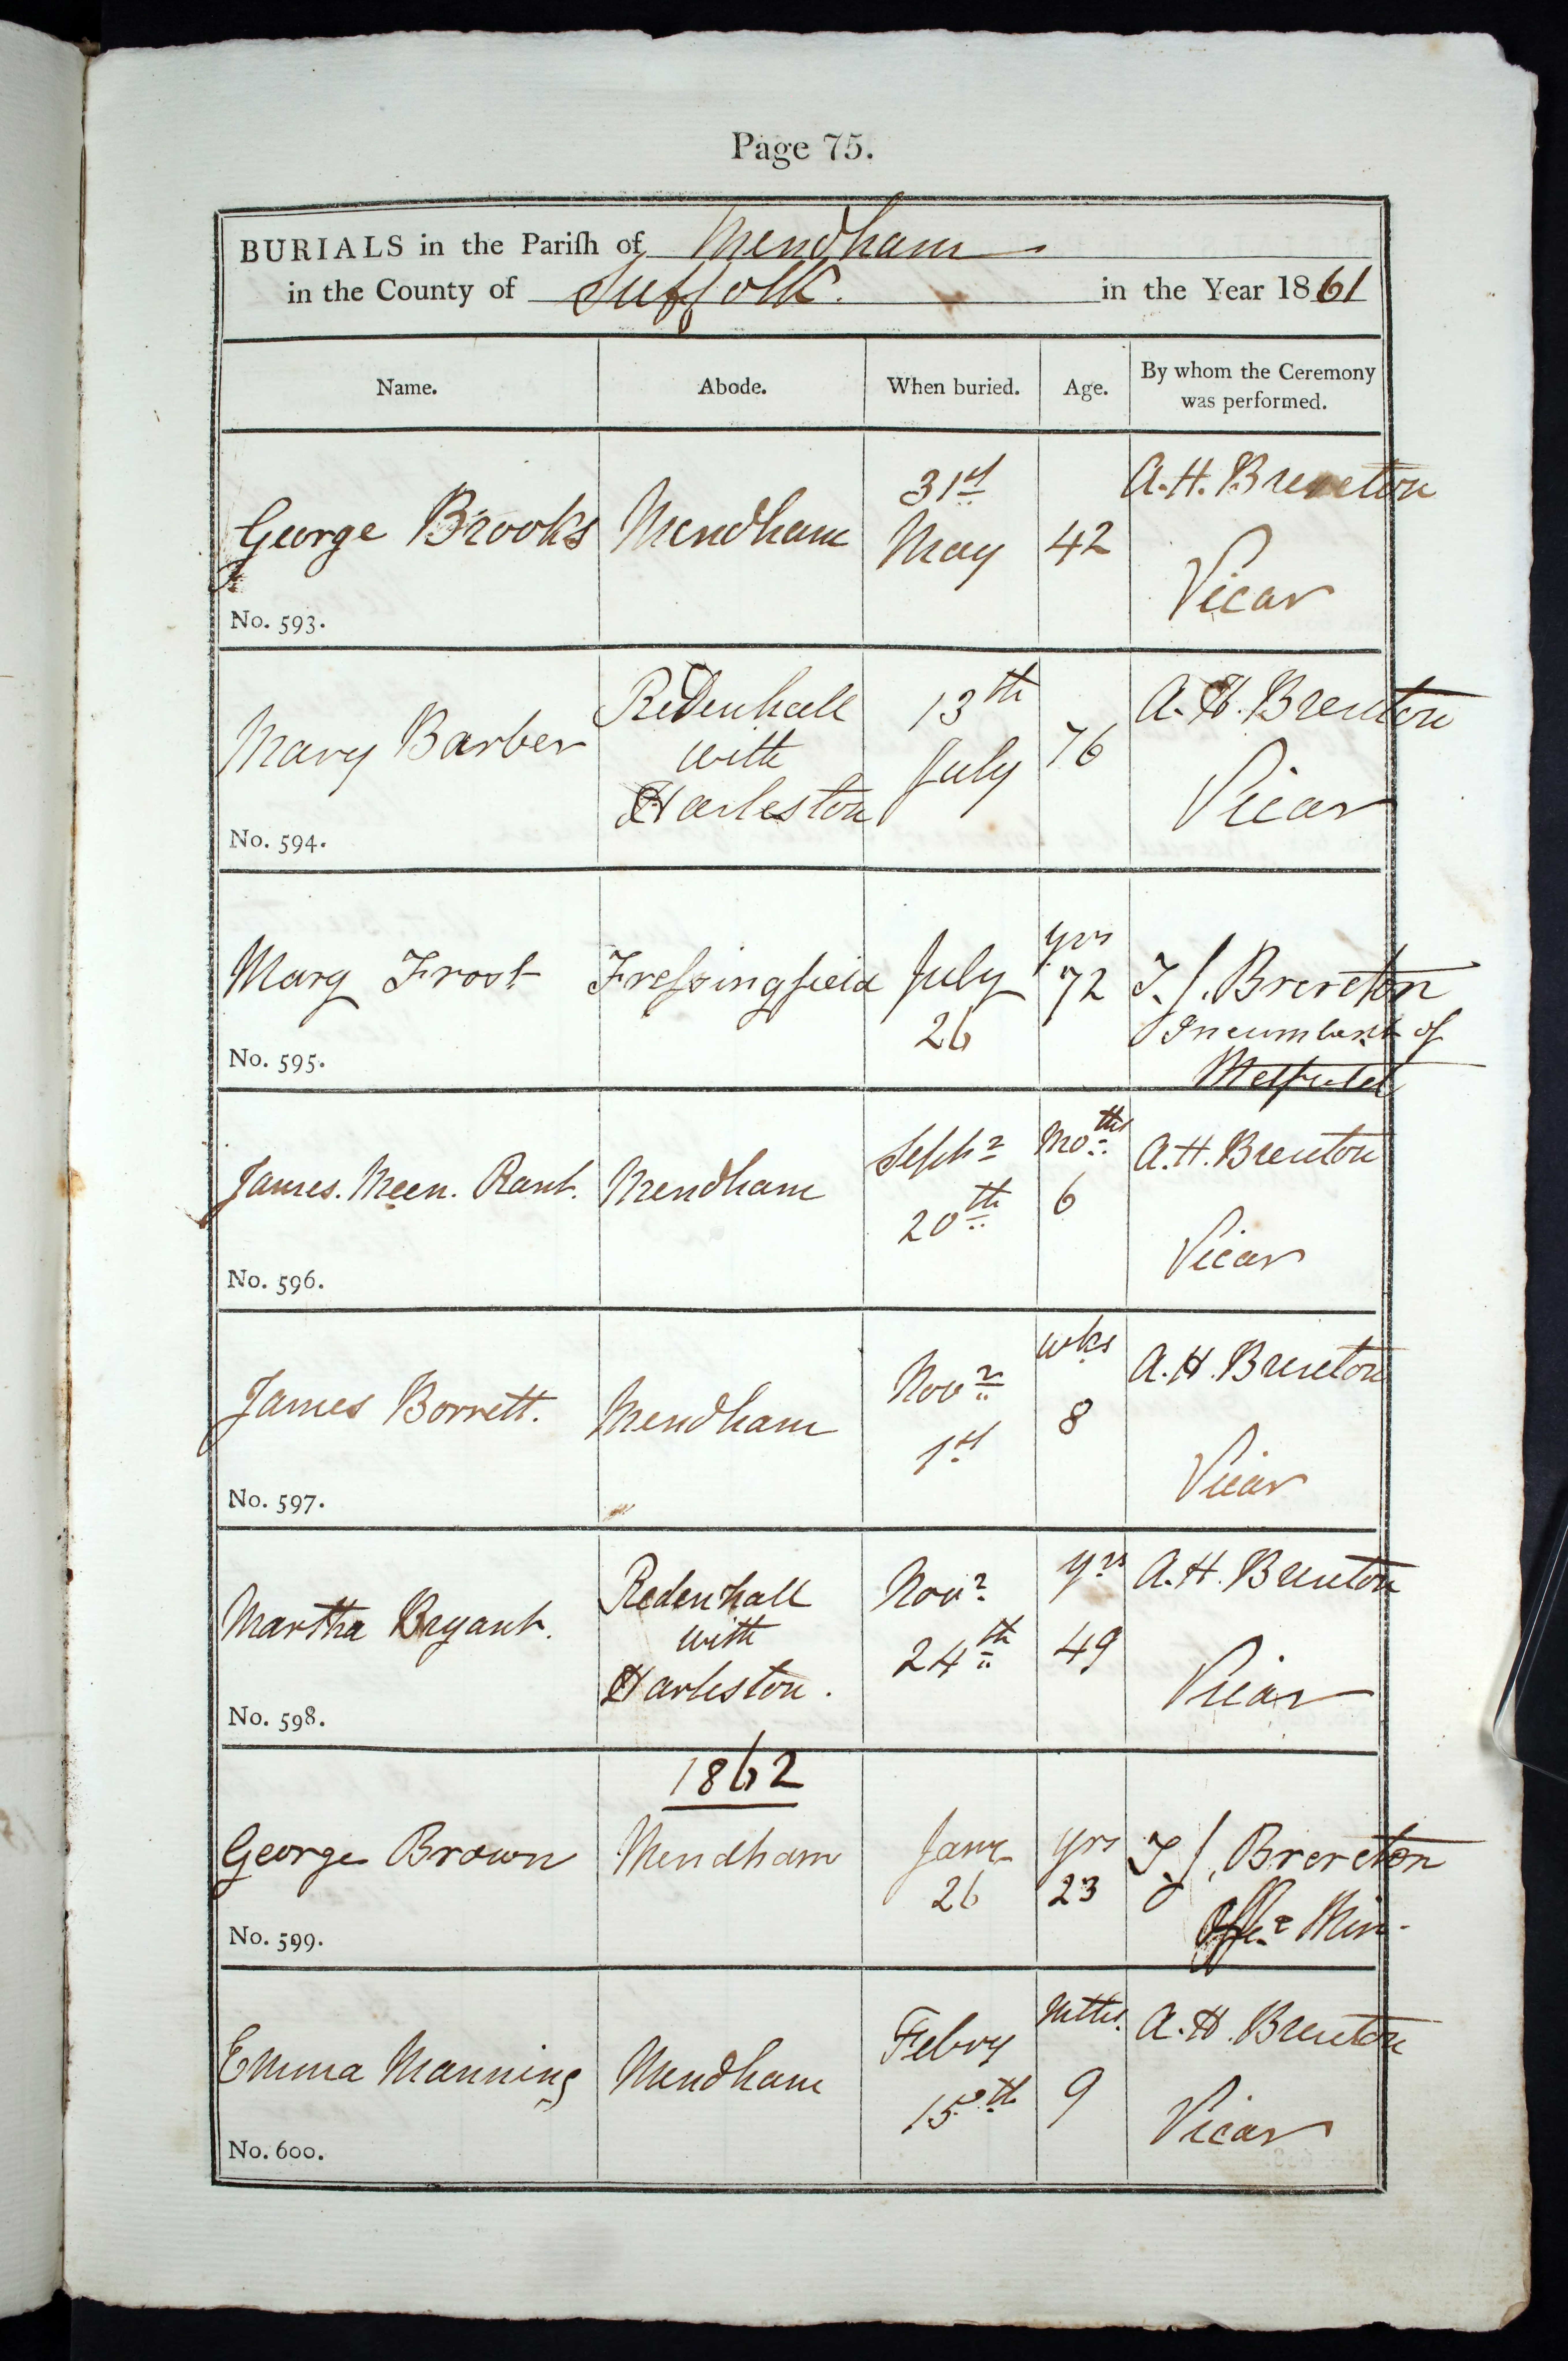 Page 75.
BURIALS in the Parish of Mendham
in the County of Suffolk. in the Year 1861
Name. Abode. When buried. Age. By whom the Ceremony was performed.
George Brooks Mendham 31st May 42 A. H. Brereton Vicar
No. 593.
Mary Barber Redenhall with Harleston 13th July 76 A. H. Brereton Vicar
No. 594.
Mary Frost Fressingfield July 26 yrs 72 T. J. Brereton Incumbent of Metfield
No. 595.
James. Meen. Rant. Mendham Septr 20th Moths 6 A. H. Brereton Vicar
No. 596.
James Borrett. Mendham Novr 1st wks 8 A. H. Brereton Vicar
No. 597.
Martha Bryant. Redenhall with Harleston. Novr 24th yrs 49 A. H. Brereton Vicar
No. 598.
1862
George Brown Mendham Jany 26 yrs 23 T. J. Brereton Offg Min.
No. 599.
Emma Manning Mendham Febry 15th mths. 9 A. H. Brereton Vicar
No. 600.